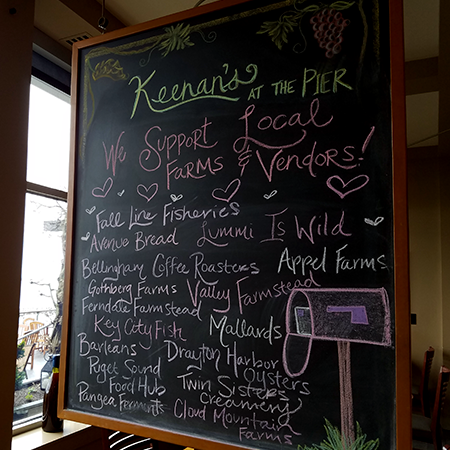 Keenan's AT THE PIER
We Support Local
Farms & Vendors!
Fall Line Fisheries
Avenue Bread Lummi Is Wild
Bellingham Coffee Roasters Appel Farms
Gothberg Farms Valley Farmstead
Ferndale Farmstead
Key City Fish Mallards
Barleans Drayton Harbor
Oysters
Puget Sound
Food Hub Twin Sisters
Creamery
Pangea Ferments Cloud Mountain
Farms